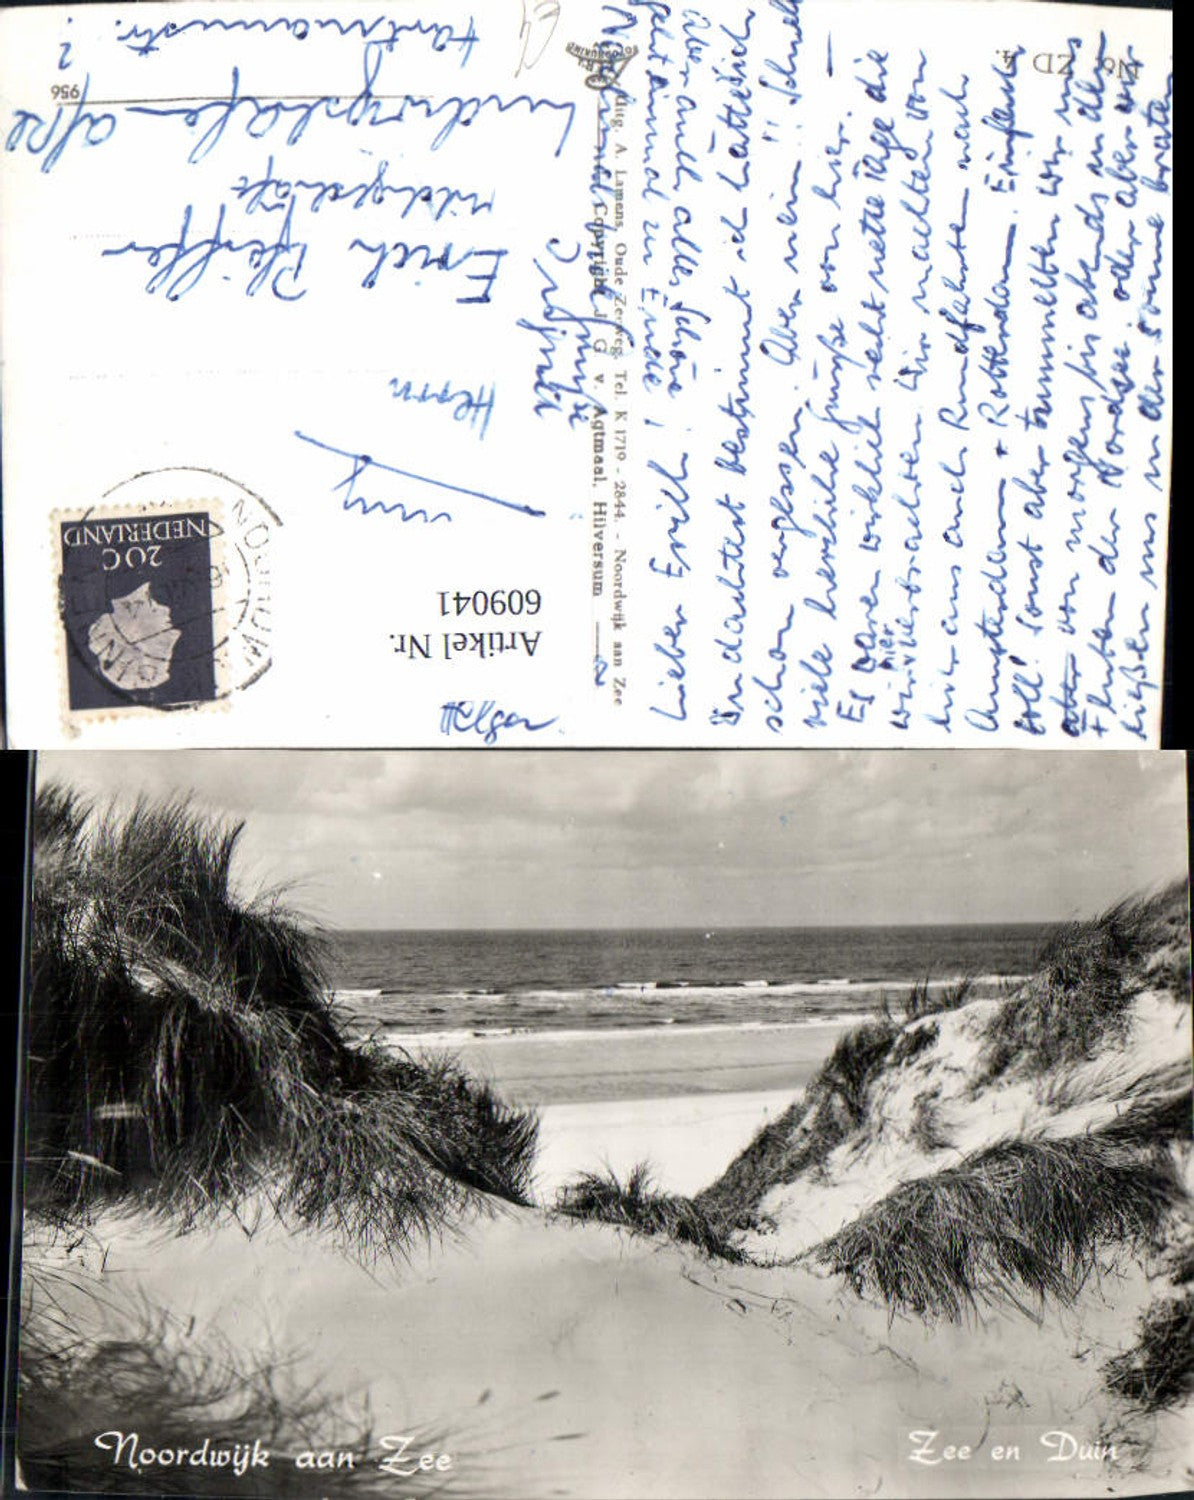 No. ZD 4.
Lieber Erich!
Du dachtest bestimmt ich hätte Dich
schon vergessen. Aber nein!! Schnell
viele herzliche Grüße von hier. —
Es waren wirklich sehr nette Tage die
wir hier verbrachten. Wir machten von
hier aus auch Rundfahrten nach
Amsterdam + Rotterdam. Einfach
toll! Sonst aber tummelten wir uns
aber von morgens bis abends an den
Fluten der Nordsee. oder aber wir
ließen uns in der Sonne braten
Aber auch alles Schöne
geht einmal zu Ende!
Uitg. A. Lamens, Oude Zeeweg, Tel. K 1719 - 2844. - Noordwijk aan Zee
Copyright J. G. v. Agtmaal, Hilversum
Herrn
Erich Pfeiffer
Ludwigshafen
Hartmannstr. 2
956
NEDERLAND
20C
Artikel Nr.
609041
Noordwijk aan Zee
Zee en Duin